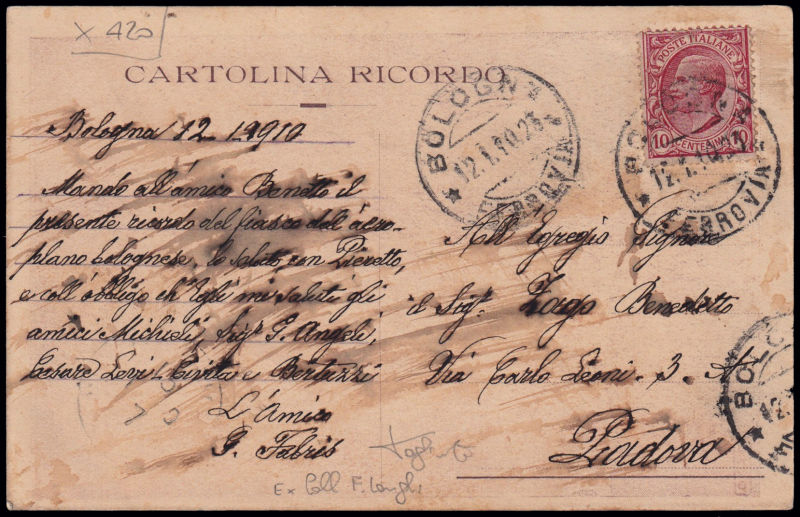 x 420
CARTOLINA RICORDO
POSTE ITALIANE
10 CENTESIMI 10
BOLOGNA
12.1.10.23
FERROVIA
BOLOGNA
12.1.10.23
FERROVIA
BOLO
12.
Bologna 12 1.1910
Mando all'amico Benetto il
presente ricordo del fiasco dell'aero-
plano bolognese, lo saluto con Pieretto,
e coll'obbligo ch'Egli mi saluti gli
amici Michieli, Sigr G. Angeli,
Cesare Levi Civita e Bertazzi
L'Amico
G. Fabris
All'Egregio Signore
il Sigr. Zago Benedetto
Via Carlo Leoni 3. A
Padova
Ex Coll F. Longhi